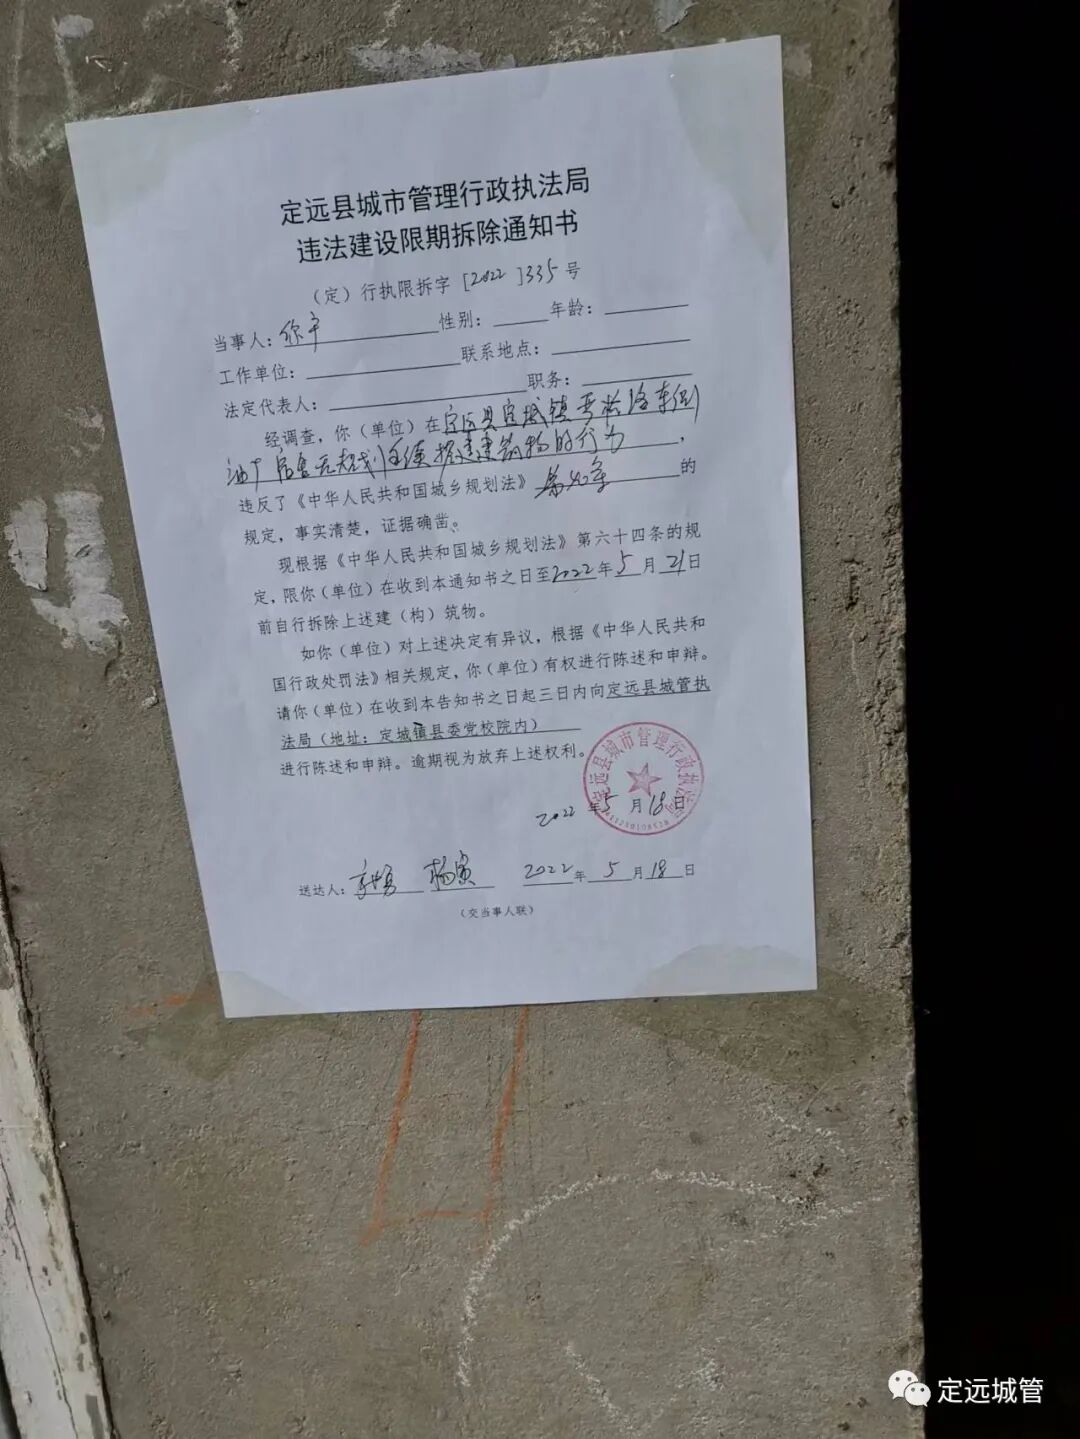 定远县城市管理行政执法局
违法建设限期拆除通知书
（定）行执限拆字［2022］335号
当事人：你户 性别： 年龄：
工作单位： 联系地点：
法定代表人： 职务：
经调查，你（单位）在定远县定城镇 路东侧
油厂宿舍无规划手续搭建建筑物的行为，
违反了《中华人民共和国城乡规划法》第40条的
规定，事实清楚，证据确凿。
现根据《中华人民共和国城乡规划法》第六十四条的规
定，限你（单位）在收到本通知书之日至2022年5月21日
前自行拆除上述建（构）筑物。
如你（单位）对上述决定有异议，根据《中华人民共和
国行政处罚法》相关规定，你（单位）有权进行陈述和申辩。
请你（单位）在收到本告知书之日起三日内向定远县城管执
法局（地址：定城镇县委党校院内）
进行陈述和申辩。逾期视为放弃上述权利。
定远县城市管理行政执法局
2022年5月18日
送达人： 杨寅 2022年5月18日
（交当事人联）
定远城管